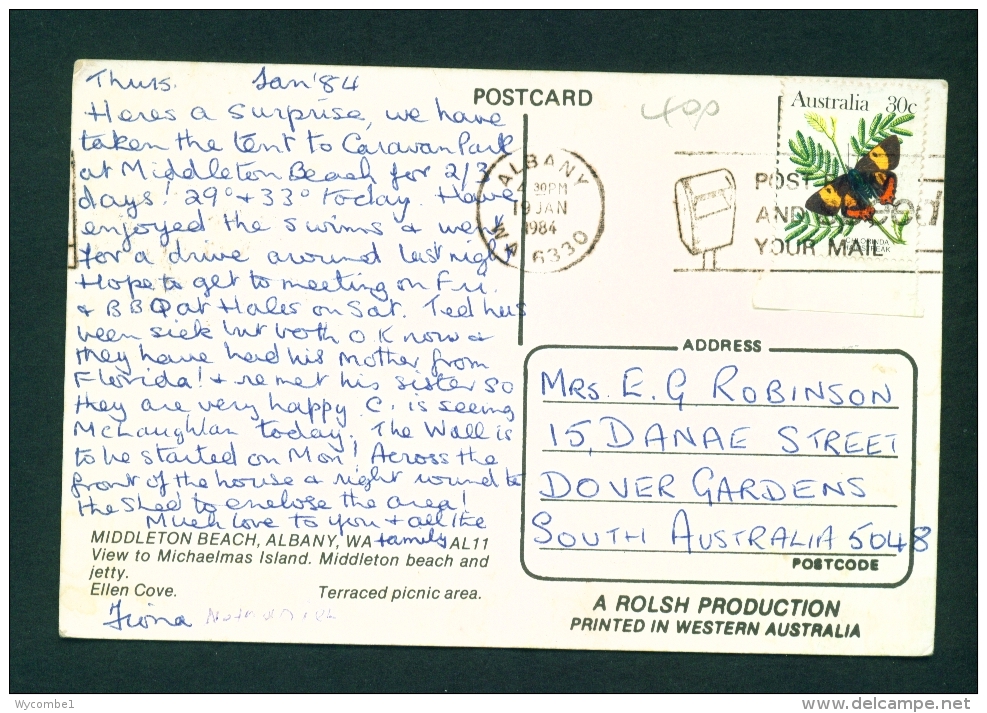 Thurs. Jan '84
Heres a surprise, we have
taken the tent to Caravan Park
at Middleton Beach for 2/3
days! 29° + 33° today. Have
enjoyed the swims & went
for a drive around last night
Hope to get to meeting on Fri.
& BBQ at Hales on Sat. Ted has
been sick but both OK now &
they have had his mother from
Florida! & re met his sister so
they are very happy. C. is seeing
McLaughlan today. The Wall is
to be started on Mon! Across the
front of the house & right round to
the Shed to enclose the area!
Much love to you & all the
family
Fiona
MIDDLETON BEACH, ALBANY, WA AL11
View to Michaelmas Island. Middleton beach and
jetty.
Ellen Cove. Terraced picnic area.
POSTCARD
400
Australia 30c
ALBANY
4 30PM
19 JAN
1984
WA 6330
POST
AND
YOUR MAIL
ADDRESS
MRS. E. G ROBINSON
15, DANAE STREET
DOVER GARDENS
SOUTH AUSTRALIA 5048
POSTCODE
A ROLSH PRODUCTION
PRINTED IN WESTERN AUSTRALIA
Wycombe1
delcampe.net